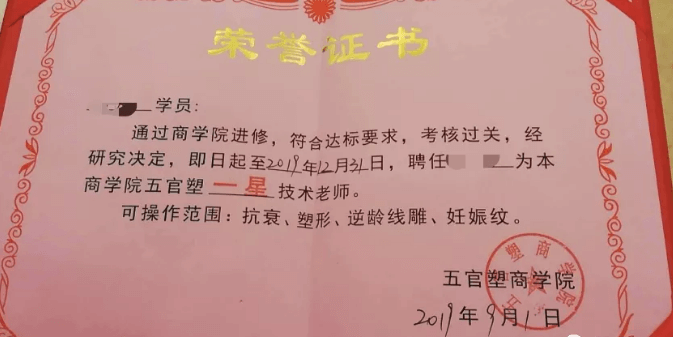 荣誉证书
学员:
通过商学院进修，符合达标要求，考核过关，经
研究决定，即日起至2019年12月31日，聘任 为本
商学院五官塑一星技术老师。
可操作范围：抗衰、塑形、逆龄线雕、妊娠纹。
五官塑商学院
2019年9月1日
五官塑商学院